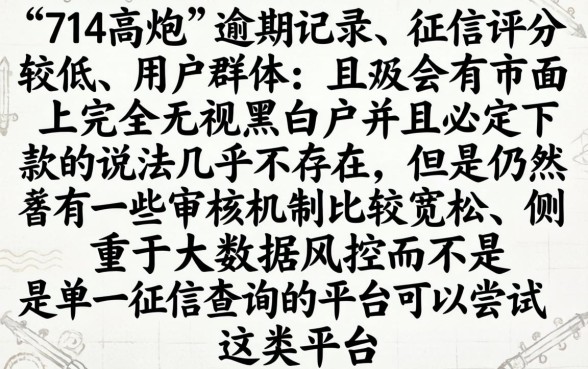 “714高炮”逾期记录、征信评分
较低、用户群体：且会有市面
上完全无视黑白户并且必定下
款的说法几乎不存在，但是仍然
有一些审核机制比较宽松、侧
重于大数据风控而不是
是单一征信查询的平台可以尝试
这类平台